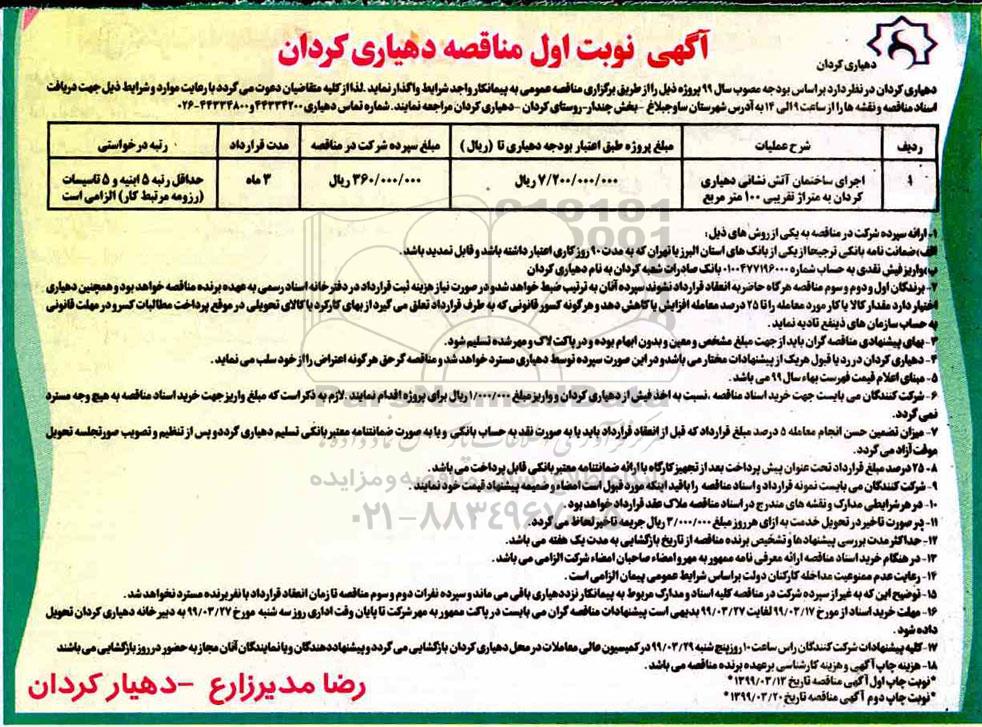 آگهی نوبت اول مناقصه دهیاری کردان
دهیاری کردان
دهیاری کردان در نظر دارد بر اساس بودجه مصوب سال ۹۹ پروژه ذیل را از طریق برگزاری مناقصه عمومی به پیمانکار واجد شرایط واگذار نماید .لذا از کلیه متقاضیان دعوت می گردد با رعایت موارد و شرایط ذیل جهت دریافت
اسناد مناقصه و نقشه ها از ساعت ۹ الی ۱۴ به آدرس شهرستان ساوجبلاغ -بخش چندار-روستای کردان -دهیاری کردان مراجعه نمایند. شماره تماس دهیاری ۴۴۲۳۴۲۰۰ و ۴۴۲۳۴۸۰۰-۰۲۶
ردیف شرح عملیات مبلغ پروژه طبق اعتبار بودجه دهیاری تا (ریال) مبلغ سپرده شرکت در مناقصه مدت قرارداد رتبه درخواستی
۱ اجرای ساختمان آتش نشانی دهیاری کردان به متراژ تقریبی ۱۰۰ متر مربع ۷/۲۰۰/۰۰۰/۰۰۰ ریال ۳۶۰/۰۰۰/۰۰۰ ریال ۳ ماه حداقل رتبه ۵ ابنیه و ۵ تاسیسات (رزومه مرتبط کار) الزامی است
۱- ارائه سپرده شرکت در مناقصه به یکی از روش های ذیل:
الف)ضمانت نامه بانکی ترجیحا از یکی از بانک های استان البرز یا تهران که به مدت ۹۰ روز کاری اعتبار داشته باشد و قابل تمدید باشد.
ب)واریز فیش نقدی به حساب شماره ۰۱۰۰۴۷۷۱۹۶۰۰۰ بانک صادرات شعبه کردان به نام دهیاری کردان
۲- برندگان اول و دوم و سوم مناقصه هرگاه حاضر به انعقاد قرارداد نشوند سپرده آنان به ترتیب ضبط خواهد شد و در صورت نیاز هزینه ثبت قرارداد در دفترخانه اسناد رسمی به عهده برنده مناقصه خواهد بود و همچنین دهیاری
اختیار دارد مقدار کالا یا کار مورد معامله را تا ۲۵ درصد معامله افزایش یا کاهش دهد و هرگونه کسور قانونی که به طرف قرارداد تعلق می گیرد از بهای کارکرد یا کالای تحویلی در موقع پرداخت مطالبات کسر و در مهلت قانونی
به حساب سازمان های ذینفع تادیه نماید.
۳- بهای پیشنهادی مناقصه گران باید از جهت مبلغ مشخص و معین و بدون ابهام بوده و در پاکت لاک و مهر شده تسلیم شود.
۴- دهیاری کردان در رد یا قبول هریک از پیشنهادات مختار می باشد و در این صورت سپرده توسط دهیاری مسترد خواهد شد و مناقصه گر حق هرگونه اعتراض را از خود سلب می نماید.
۵- مبنای اعلام قیمت فهرست بهاء سال ۹۹ می باشد.
۶- شرکت کنندگان می بایست جهت خرید اسناد مناقصه ،نسبت به اخذ فیش از دهیاری کردان و واریز مبلغ ۱/۰۰۰/۰۰۰ ریال برای پروژه اقدام نمایند .لازم به ذکر است که مبلغ واریز جهت خرید اسناد مناقصه به هیچ وجه مسترد
نمی گردد.
۷- میزان تضمین حسن انجام معامله ۵ درصد مبلغ قرارداد که قبل از انعقاد قرارداد باید یا به صورت نقد به حساب بانکی و یا به صورت ضمانتنامه معتبر بانکی تسلیم دهیاری گردد و پس از تنظیم و تصویب صورتجلسه تحویل
موقت آزاد می گردد.
۸- ۲۵ درصد مبلغ قرارداد تحت عنوان پیش پرداخت بعد از تجهیز کارگاه با ارائه ضمانتنامه معتبر بانکی قابل پرداخت می باشد.
۹- شرکت کنندگان می بایست نمونه قرارداد و اسناد مناقصه را باقید اینکه مورد قبول است امضاء و ضمیمه پیشنهاد قیمت خود نمایند.
۱۰- در هر شرایطی مدارک و نقشه های مندرج در اسناد مناقصه ملاک عقد قرارداد خواهد بود.
۱۱- در صورت تاخیر در تحویل خدمت به ازای هر روز مبلغ ۳/۰۰۰/۰۰۰ ریال جریمه تاخیر لحاظ می گردد.
۱۲- حداکثر مدت بررسی پیشنهادها و تشخیص برنده مناقصه از تاریخ بازگشایی به مدت یک هفته می باشد.
۱۳- در هنگام خرید اسناد مناقصه ارائه معرفی نامه ممهور به مهر و امضاء صاحبان امضاء شرکت الزامی می باشد.
۱۴- رعایت عدم ممنوعیت مداخله کارکنان دولت بر اساس شرایط عمومی پیمان الزامی است.
۱۵- توضیح این که به غیر از سپرده شرکت در مناقصه کلیه اسناد و مدارک مربوط به پیمانکار نزد دهیاری باقی می ماند و سپرده نفرات دوم و سوم مناقصه تا زمان انعقاد قرارداد با نفر برنده مسترد نخواهد شد.
۱۶- مهلت خرید اسناد از مورخ ۹۹/۰۳/۱۷ لغایت ۹۹/۰۳/۲۷ بدیهی است پیشنهادات مناقصه گران می بایست در پاکت ممهور به مهر شرکت تا پایان وقت اداری روز سه شنبه مورخ ۹۹/۰۳/۲۷ به دبیرخانه دهیاری کردان تحویل
داده شود.
۱۷- کلیه پیشنهادات شرکت کنندگان راس ساعت ۱۰ روز پنج شنبه ۹۹/۰۳/۲۹ در کمیسیون عالی معاملات در محل دهیاری کردان بازگشایی می گردد و پیشنهاد دهندگان و یا نمایندگان آنان مجاز به حضور در روز بازگشایی می باشند
۱۸- هزینه چاپ آگهی و هزینه کارشناسی بر عهده برنده مناقصه می باشد.
*نوبت چاپ اول آگهی مناقصه تاریخ ۱۳۹۹/۰۳/۱۳*
*نوبت چاپ دوم آگهی مناقصه تاریخ ۱۳۹۹/۰۳/۲۰*
رضا مدیرزارع -دهیار کردان
ParsNamadData
۰۲۱-۸۸۳۴۹۶۷۰-۵